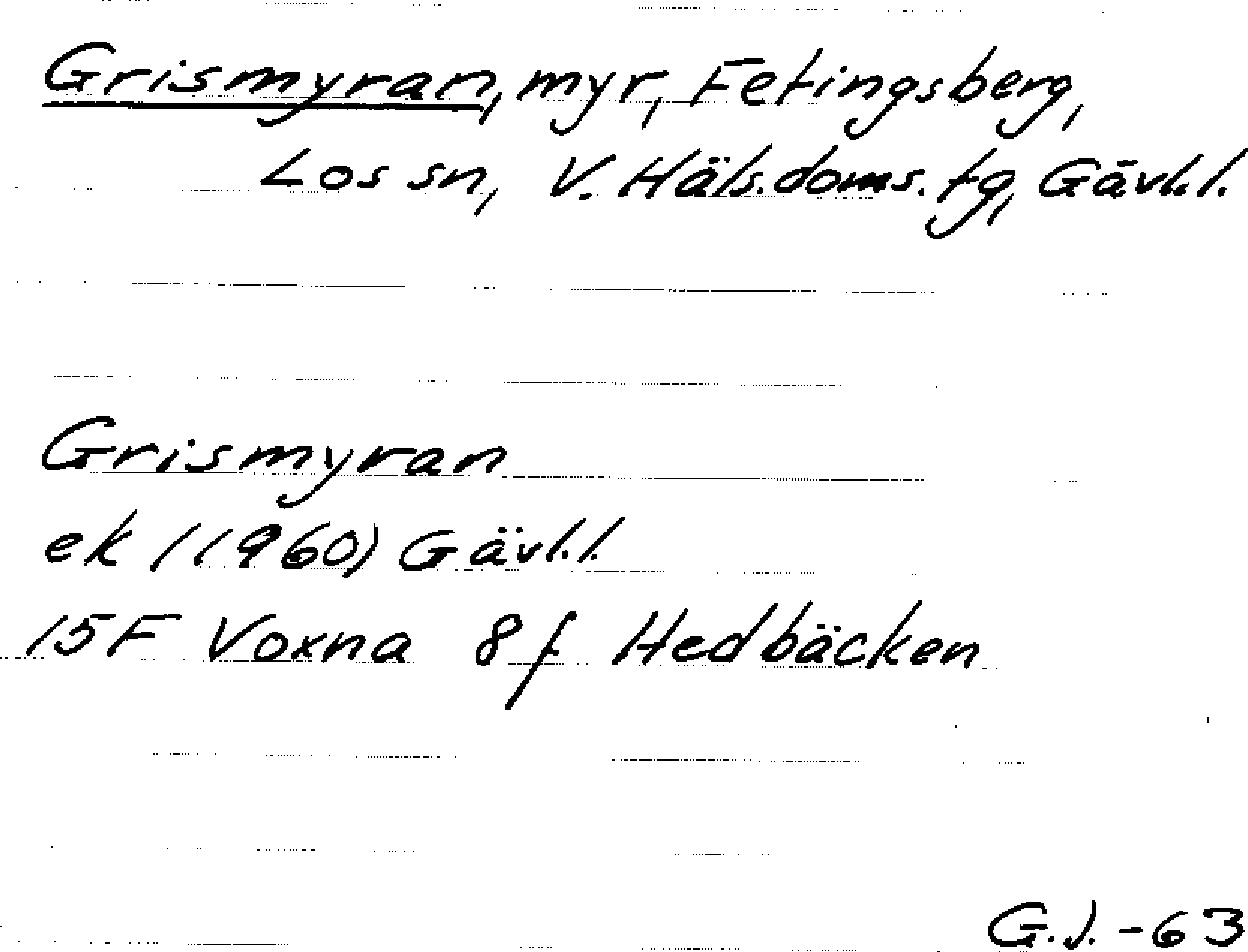 Grismyran, myr, Fetingsberg,
Los sn, V. Häls.doms. tg, Gävl.l.
Grismyran
ek (1960) Gävl.l.
15F Voxna 8f Hedbäcken
G.J. -63